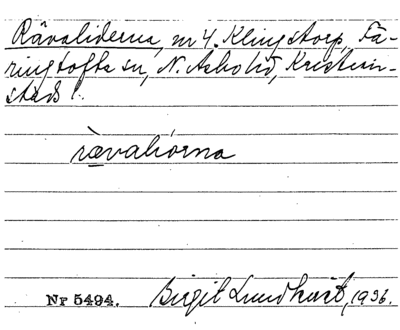 Rävaliderna, nr 4. Klingstorp, Fä-
ringtofta sn, N. Åsbo hd, Kristian-
stads l.
rävali̯orna
Nr 5494. Birgit Lundkvist, 1936.